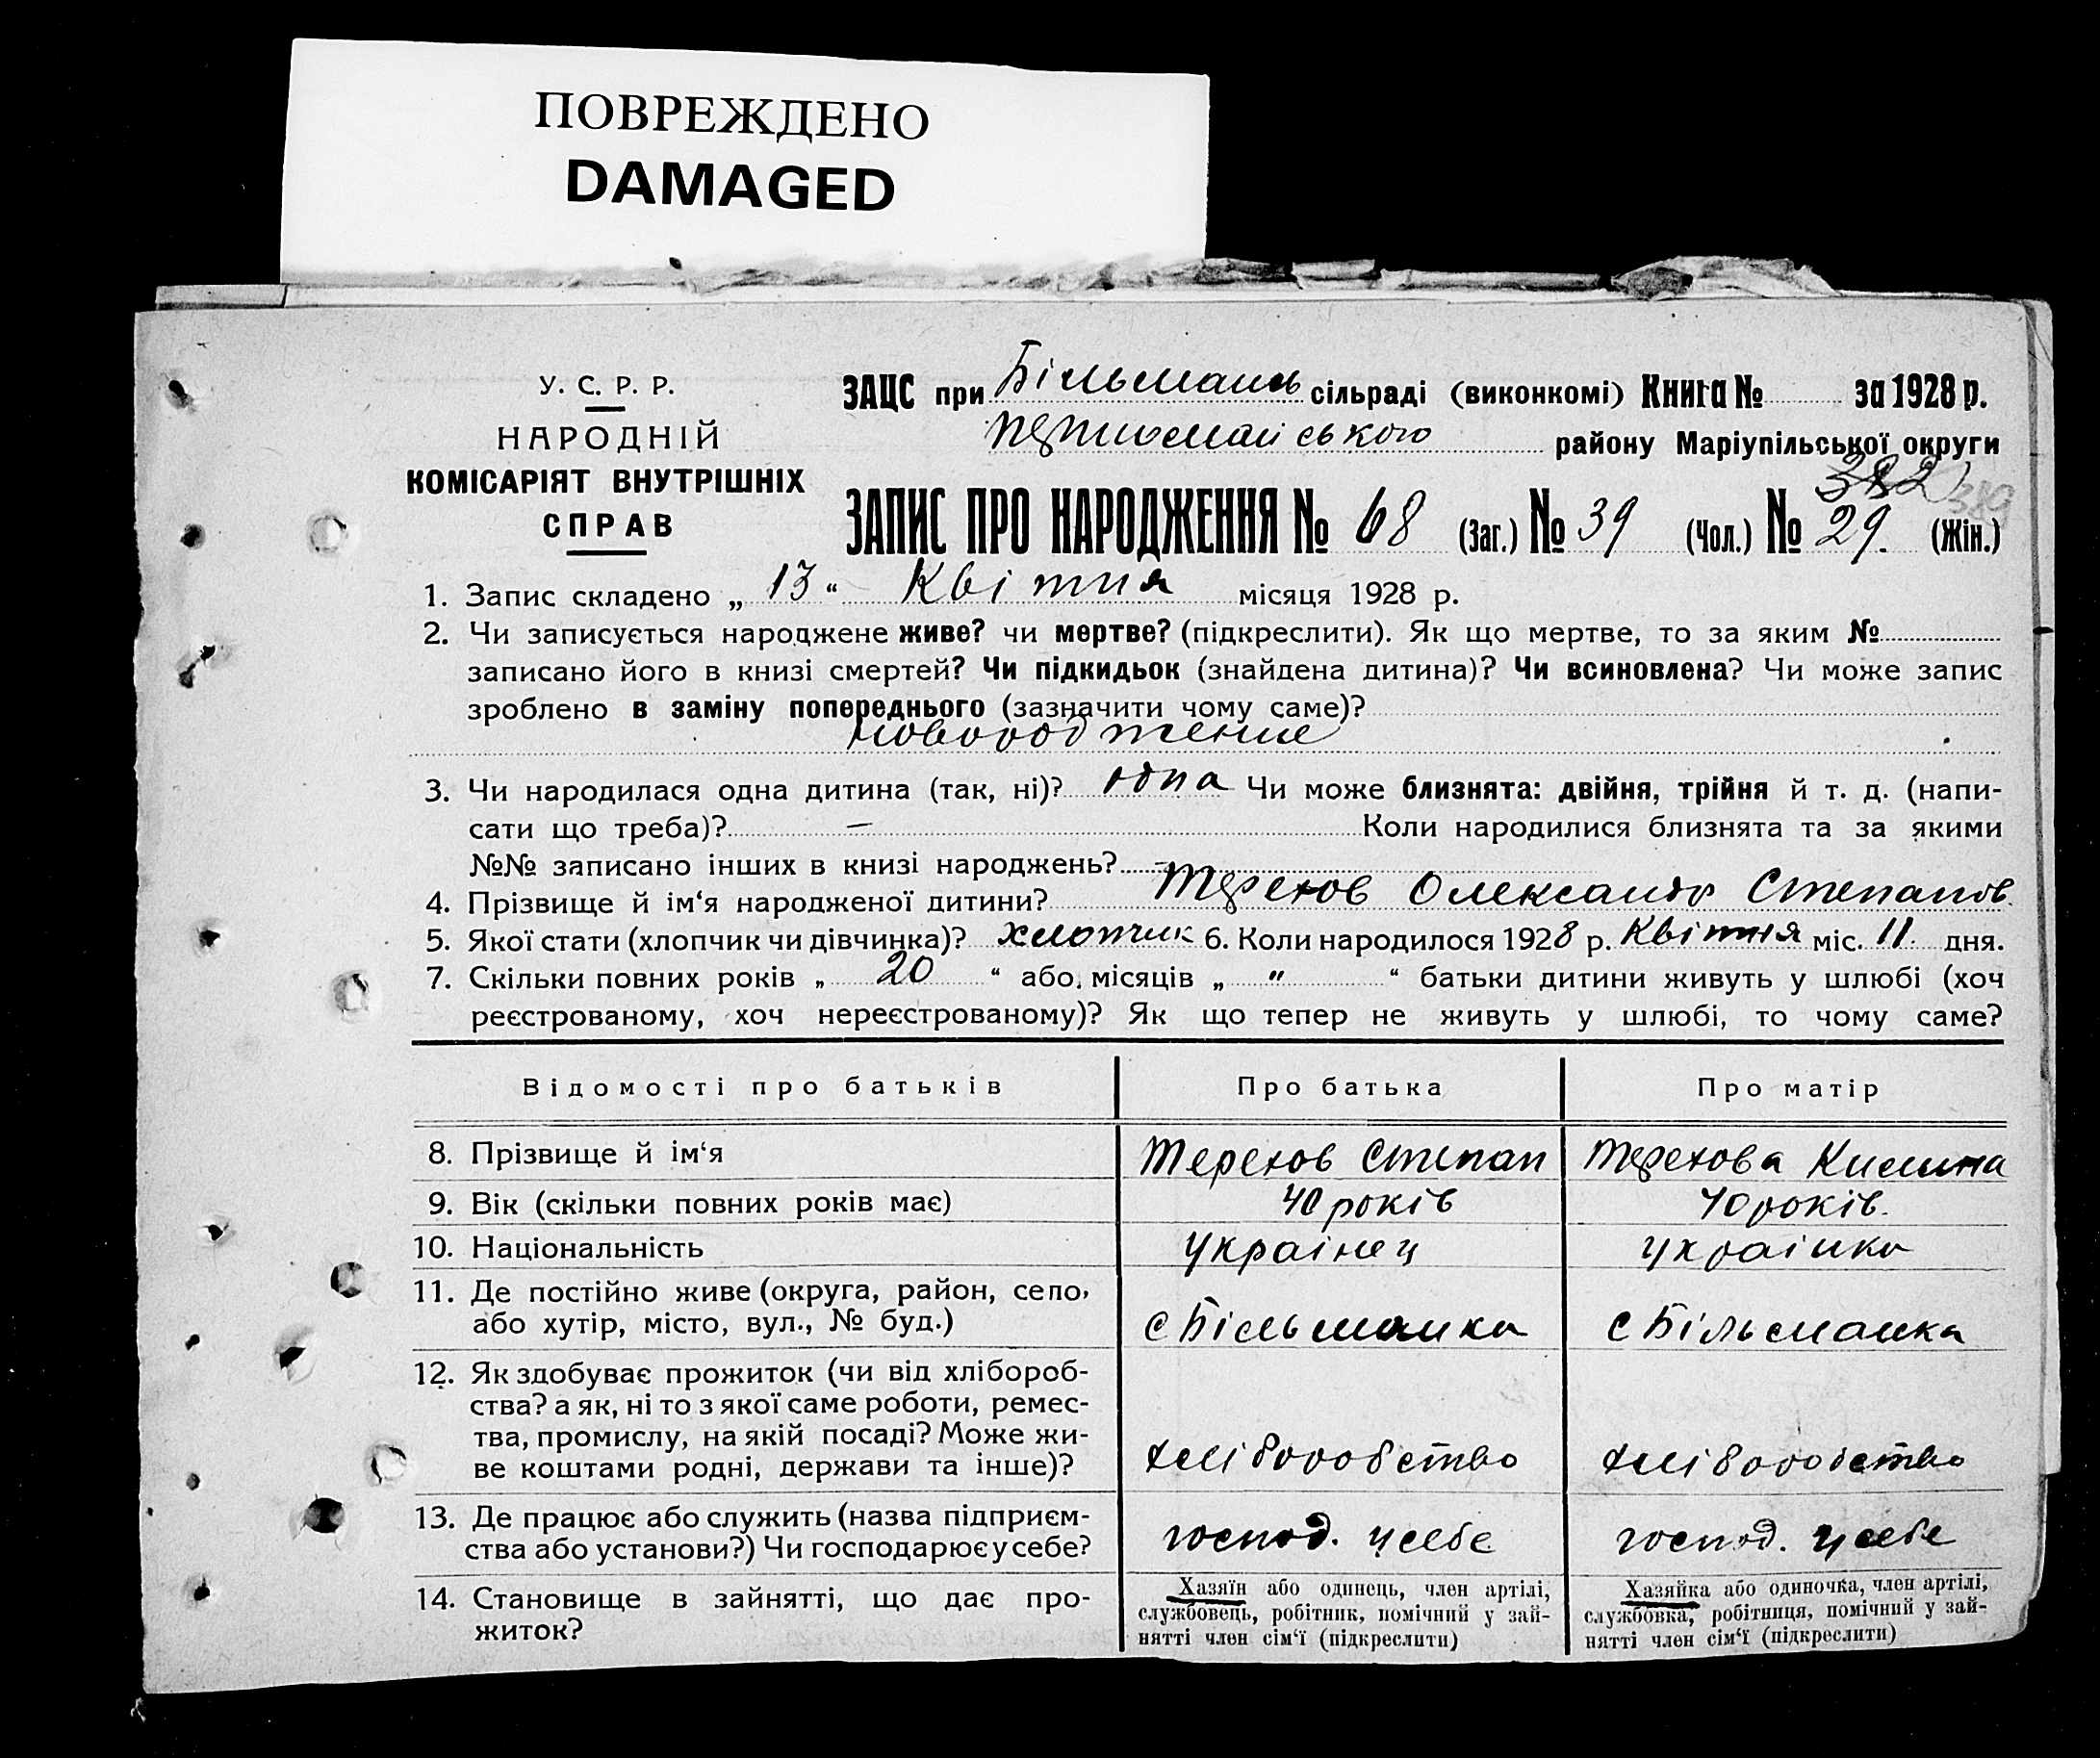 ПОВРЕЖДЕНО
DAMAGED
У. С. Р. Р.
НАРОДНІЙ
КОМІСАРІЯТ ВНУТРІШНІХ
СПРАВ
ЗАЦС при Більмань сільраді (виконкомі) Книга № за 1928 р.
першомайського району Маріупільської округи
382 389
ЗАПИС ПРО НАРОДЖЕННЯ № 68 (Заг.) № 39 (Чол.) № 29. (Жін.)
1. Запис складено „ 13 “ Квітня місяця 1928 р.
2. Чи записується народжене живе? чи мертве? (підкреслити). Як що мертве, то за яким №
записано його в книзі смертей? Чи підкидьок (знайдена дитина)? Чи всиновлена? Чи може запис
зроблено в заміну попереднього (зазначити чому саме)?
3. Чи народилася одна дитина (так, ні)? одна Чи може близнята: двійня, трійня й т. д. (напи-
сати що треба)? — Коли народилися близнята та за якими
№№ записано інших в книзі народжень? —
4. Прізвище й ім‘я народженої дитини? Терехов Олександр Степанов
5. Якої стати (хлопчик чи дівчинка)? хлопчик 6. Коли народилося 1928 р. Квітня міс. 11. дня.
7. Скільки повних років „ 20 “ або місяців „ " “ батьки дитини живуть у шлюбі (хоч
реєстрованому, хоч нереєстрованому)? Як що тепер не живуть у шлюбі, то чому саме?
Відомості про батьків Про батька Про матір
8. Прізвище й ім‘я Терехов Степан Терехова Килина
9. Вік (скільки повних років має) 40 років 40 років.
10. Національність Украінец Украінка
11. Де постійно живе (округа, район, село,
або хутір, місто, вул., № буд.) с Більманка с Більманка
12. Як здобуває прожиток (чи від хлібороб-
ства? а як, ні то з якої саме роботи, ремес-
тва, промислу, на якій посаді? Може жи-
ве коштами родні, держави та інше)? хліборобство хліборобство
13. Де працює або служить (назва підприєм-
ства або установи?) Чи господарює у себе? господ. у себе господ. у себе
14. Становище в зайнятті, що дає про-
житок?
Хазяїн або одинець, член артілі,
службовець, робітник, помічний у зай-
нятті член сім‘ї (підкреслити)
Хазяйка або одиночка, член артілі,
службовка, робітниця, помічний у зай-
нятті член сім‘ї (підкреслити)